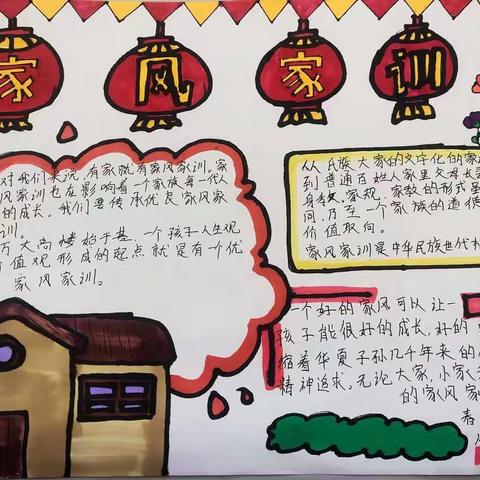 家风家训
对我们来说,有家就有家风家训。家
风家训也在影响有一个家族每一代人
的成长,我们要传承优良家风家
训。
万丈高楼始于基,一个孩子人生观
价值观形成的起点就是有一个优
家风家训。
从氏族大家的文字化的家
到普通百姓人家里父母长
身教、家规、家教的形式
间,乃至一个家族的道德
价值取向。
家风家训是中华民族世代
一个好的家风可以让一
孩子能很好的成长,好的
缩着华夏子孙几千年来的
精神追求。无论大家,小家
的家风家
春